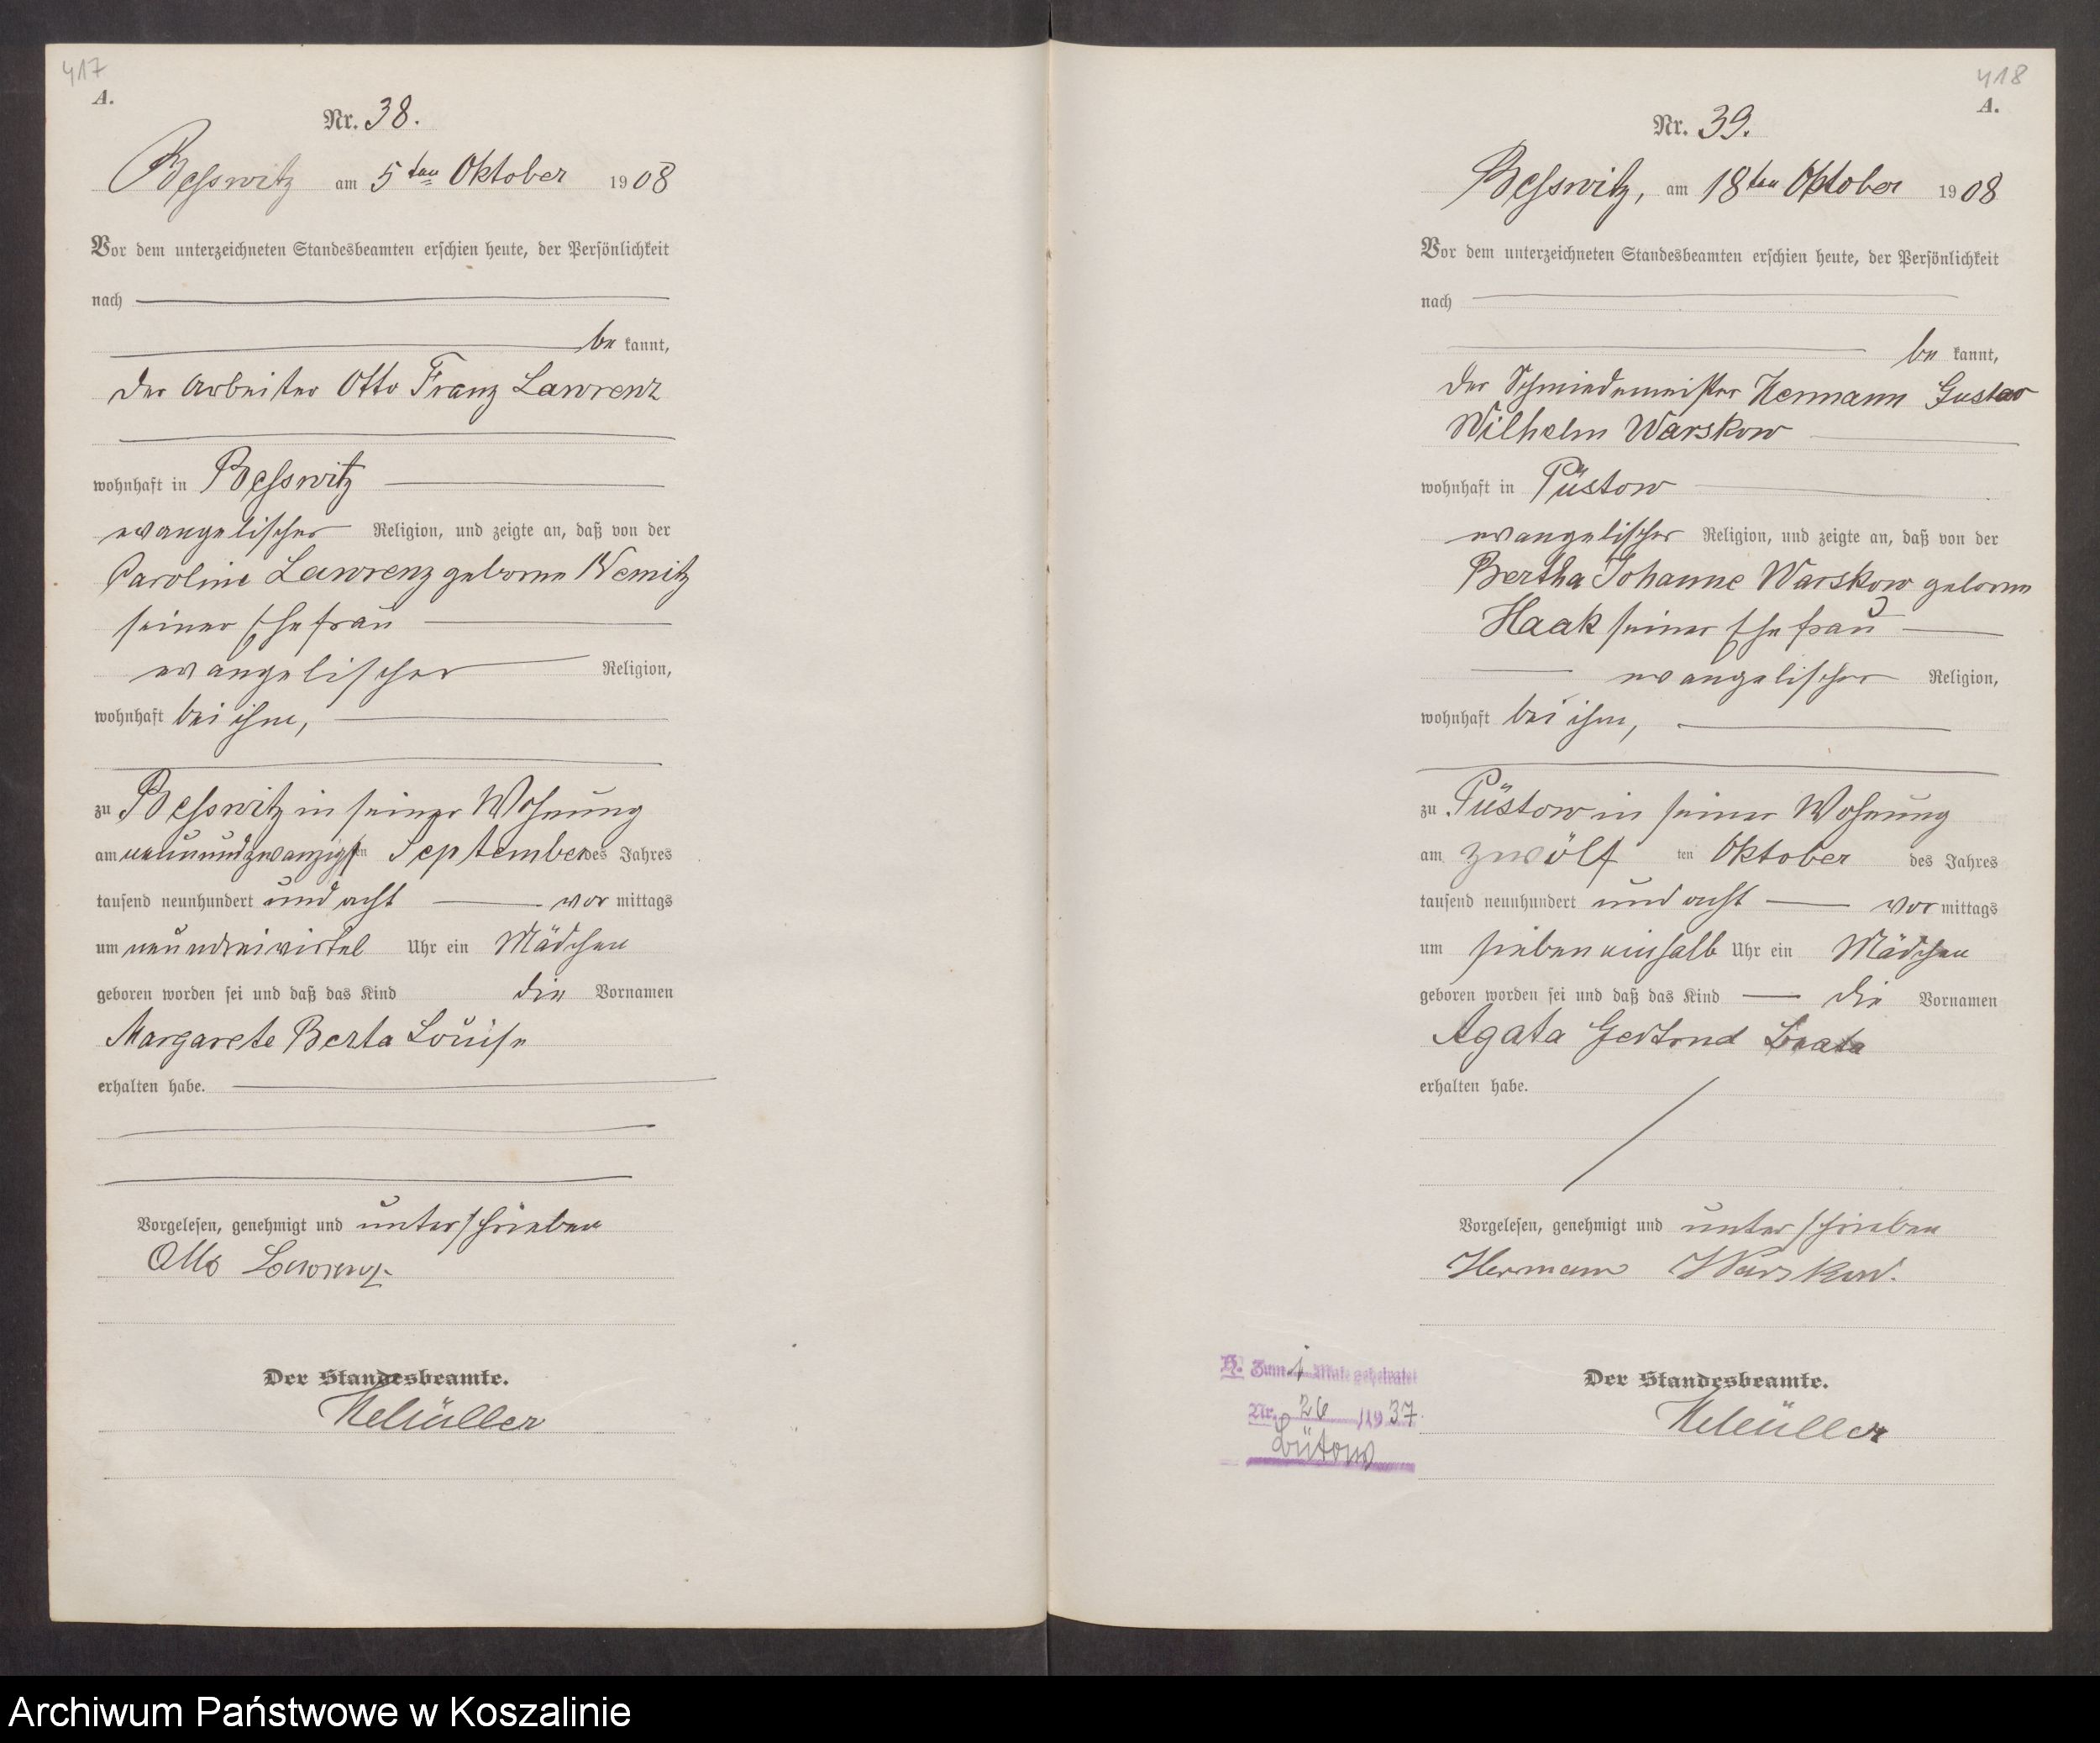 417
A.
Nr. 38.
Besswitz am 5ten Oktober 1908
Vor dem unterzeichneten Standesbeamten erschien heute, der Persönlichkeit
nach
be kannt,
der Arbeiter Otto Franz Lawrenz
wohnhaft in Besswitz
evangelischer Religion, und zeigte an, daß von der
Caroline Lawrenz geborne Nemitz
seiner Ehefrau
evangelischer Religion,
wohnhaft bei ihm,
zu Besswitz in seiner Wohnung
am neunundzwanzigsten September des Jahres
tausend neunhundert und acht vor mittags
um neundreiviertel Uhr ein Mädchen
geboren worden sei und daß das Kind die Vornamen
Margarete Berta Louise
erhalten habe.
Vorgelesen, genehmigt und unterschrieben
Otto Lawrenz
Der Standesbeamte.
418
A.
Nr. 39.
Besswitz, am 18ten Oktober 1908
Vor dem unterzeichneten Standesbeamten erschien heute, der Persönlichkeit
nach
be kannt,
der Schmiedemeister Hermann Gustav
Wilhelm Warskow
wohnhaft in Püstow
evangelischer Religion, und zeigte an, daß von der
Bertha Johanne Warskow geborne
Haak seiner Ehefrau
evangelischer Religion,
wohnhaft bei ihm,
zu Püstow in seiner Wohnung
am zwölf ten Oktober des Jahres
tausend neunhundert und acht vor mittags
um sieben einhalb Uhr ein Mädchen
geboren worden sei und daß das Kind die Vornamen
Agata Gertrud Beata
erhalten habe.
Vorgelesen, genehmigt und unterschrieben
Hermann Warskow.
H. Zum 1 Male geheiratet
Nr. 26 /1937.
Bütow
Der Standesbeamte.
Archiwum Państwowe w Koszalinie